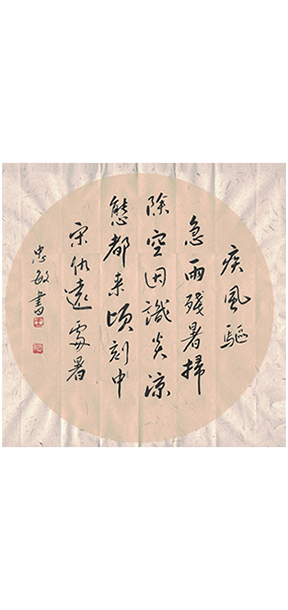 疾風驅
急雨残暑掃
除空因識炎涼
態都来頃刻中
宋仇遠處暑
忠敏書